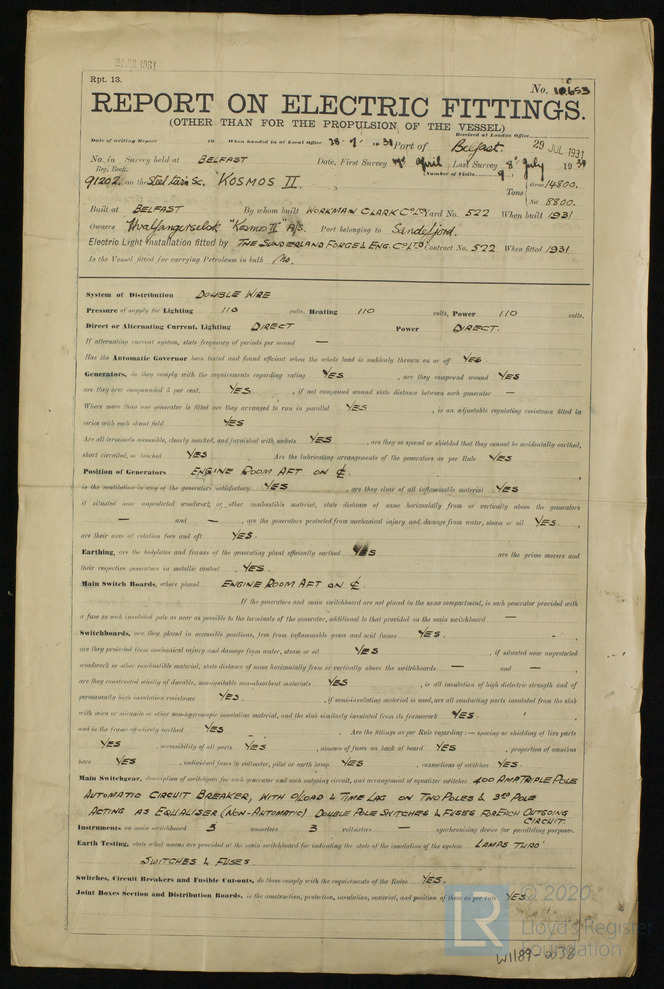 Rpt. 13.
No. 10653
REPORT ON ELECTRIC FITTINGS.
(OTHER THAN FOR THE PROPULSION OF THE VESSEL)
Received at London Office
29 JUL 1931
Date of writing Report 19 When handed in at Local Office 28·7·1931 Port of Belfast
No. in Survey held at BELFAST Date, First Survey April Last Survey 8th July 1931
Reg. Book. Number of Visits 9
91202 on the Steel Twin Sc. "KOSMOS II" Tons Gross 14800. Net 8800.
Built at BELFAST By whom built WORKMAN CLARK Co Ltd Yard No. 522 When built 1931
Owners Hvalfangerselsk. "Kosmos II" A/S. Port belonging to Sandefjord.
Electric Light Installation fitted by THE SUNDERLAND FORGE & ENG. Co LTD Contract No. 522 When fitted 1931
Is the Vessel fitted for carrying Petroleum in bulk No.
System of Distribution DOUBLE WIRE
Pressure of supply for Lighting 110 volts, Heating 110 volts, Power 110 volts.
Direct or Alternating Current, Lighting DIRECT Power DIRECT.
If alternating current system, state frequency of periods per second —
Has the Automatic Governor been tested and found efficient when the whole load is suddenly thrown on or off YES.
Generators, do they comply with the requirements regarding rating YES , are they compound wound YES
are they over compounded 5 per cent. YES. , if not compound wound state distance between each generator —
Where more than one generator is fitted are they arranged to run in parallel YES , is an adjustable regulating resistance fitted in
series with each shunt field YES
Are all terminals accessible, clearly marked, and furnished with sockets YES , are they so spaced or shielded that they cannot be accidentally earthed,
short circuited, or touched YES Are the lubricating arrangements of the generators as per Rule YES
Position of Generators ENGINE ROOM AFT ON ℄.
is the ventilation in way of the generators satisfactory YES , are they clear of all inflammable material YES
if situated near unprotected woodwork or other combustible material, state distance of same horizontally from or vertically above the generators
— and — , are the generators protected from mechanical injury and damage from water, steam or oil YES.
are their axes of rotation fore and aft YES.
Earthing, are the bedplates and frames of the generating plant efficiently earthed YES are the prime movers and
their respective generators in metallic contact YES.
Main Switch Boards, where placed ENGINE ROOM AFT ON ℄.
If the generators and main switchboard are not placed in the same compartment, is each generator provided with
a fuse on each insulated pole as near as possible to the terminals of the generator, additional to that provided on the main switchboard —
Switchboards, are they placed in accessible positions, free from inflammable gases and acid fumes YES.
are they protected from mechanical injury and damage from water, steam or oil YES , if situated near unprotected
woodwork or other combustible material, state distance of same horizontally from or vertically above the switchboards — and —
are they constructed wholly of durable, non-ignitable non-absorbent materials YES , is all insulation of high dielectric strength and of
permanently high insulation resistance YES. , if semi-insulating material is used, are all conducting parts insulated from the slab
with mica or micanite or other non-hygroscopic insulating material, and the slab similarly insulated from its framework YES.
and is the frame effectively earthed YES Are the fittings as per Rule regarding:— spacing or shielding of live parts
YES , accessibility of all parts YES , absence of fuses on back of board YES , proportion of omnibus
bars YES , individual fuses to voltmeter, pilot or earth lamp YES , connections of switches YES.
Main Switchgear, description of switchgear for each generator and each outgoing circuit, and arrangement of equalizer switches 400 AMP TRIPLE POLE
AUTOMATIC CIRCUIT BREAKER, WITH O/LOAD & TIME LAG ON TWO POLES & 3RD POLE
ACTING AS EQUALISER (NON-AUTOMATIC) DOUBLE POLE SWITCHES & FUSES FOR EACH OUTGOING
CIRCUIT.
Instruments on main switchboard 3 ammeters 3 voltmeters — synchronising device for paralleling purposes.
Earth Testing, state what means are provided at the main switchboard for indicating the state of the insulation of the system LAMPS THRO'
SWITCHES & FUSES.
Switches, Circuit Breakers and Fusible Cut-outs, do these comply with the requirements of the Rules YES.
Joint Boxes Section and Distribution Boards, is the construction, protection, insulation, material, and position of these as per rule YES
LR
© 2020
Lloyd's Register
Foundation
W1189-0038